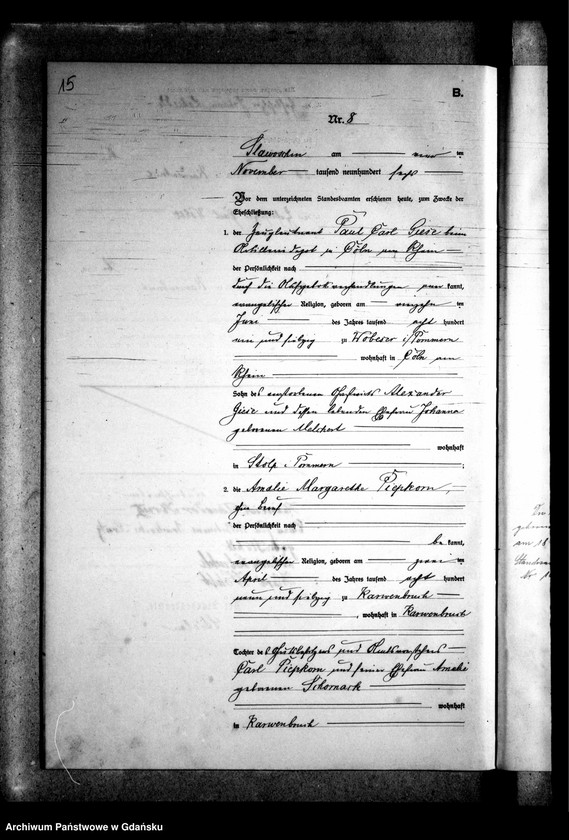 15
B.
Nr. 8
Slawoschin am neun ten
November tausend neunhundert sechs
Vor dem unterzeichneten Standesbeamten erschienen heute, zum Zwecke der
Eheschließung:
1. der Zeugleutnant Paul Carl Giese beim
Artilleriedepot in Cöln am Rhein
der Persönlichkeit nach
durch die Aufgebotsverhandlungen aner kannt,
evangelischer Religion, geboren am vierzehn ten
Juni des Jahres tausend acht hundert
neun und siebzig zu Wobeser i/Pommern
wohnhaft in Cöln am
Rhein
Sohn des verstorbenen Alexander
Giese und dessen lebenden Ehefrau Johanna
geborenen Melchert
wohnhaft
in Stolp i. Pommern ;
2. die Amalie Margarethe Piepkorn,
ohne Beruf
der Persönlichkeit nach
be kannt,
evangelischer Religion, geboren am zwei ten
April des Jahres tausend acht hundert
neun und siebzig zu Karwenbruch
, wohnhaft in Karwenbruch
Tochter des Gutsbesitzers und Amtsvorstehers
Carl Piepkorn und seiner Ehefrau Amalie
geborenen Schornack
wohnhaft
in Karwenbruch
Archiwum Państwowe w Gdańsku